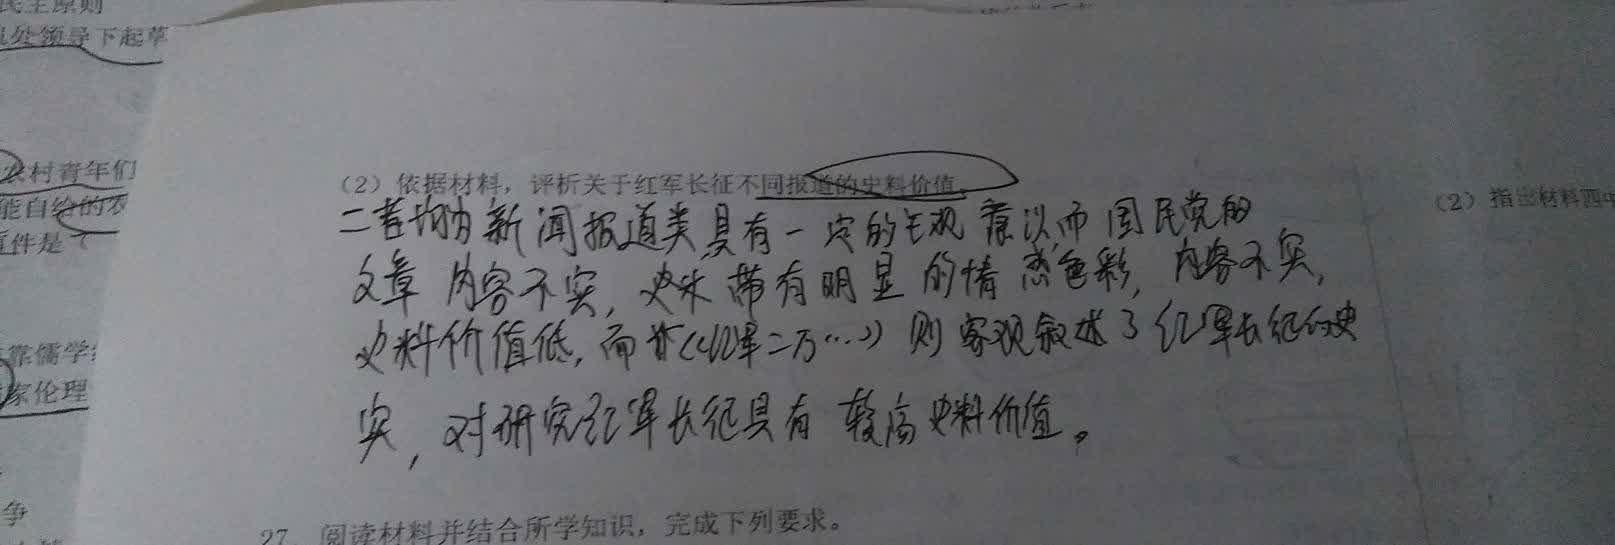 民主原则
处领导下起草
农村青年们
能自给的农
件是
靠儒学
家伦理
争
(2) 依据材料，评析关于红军长征不同报道的史料价值。
二者均为新闻报道类具有一定的主观意识而国民党的
文章内容不实，史末带有明显的情感色彩，内容不实，
史料价值低，而《红军二万…》则客观叙述了红军长征的史
实，对研究红军长征具有较高史料价值。
27. 阅读材料并结合所学知识，完成下列要求。
(2) 指出材料四中